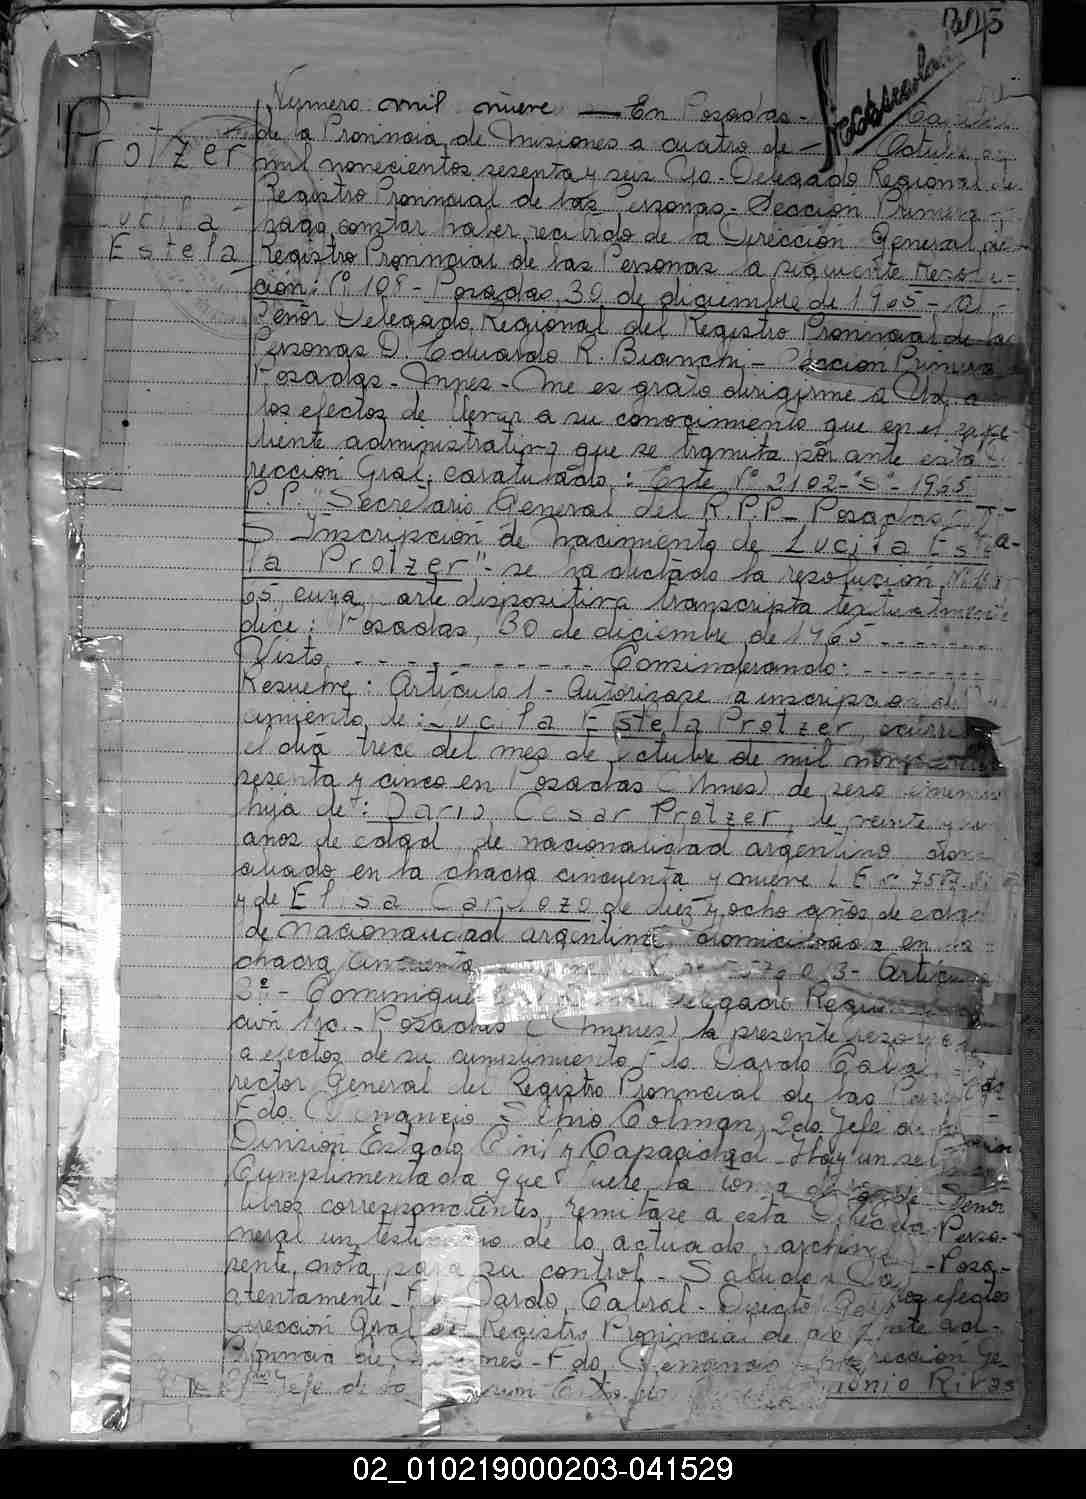 Protzer
Lucila
Estela
Número mil nueve — En Posadas - Capital
de la Provincia de Misiones a cuatro de - Octubre de
mil novecientos sesenta y seis Yo - Delegado Regional del
Registro Provincial de las Personas - Sección Primera
hago constar haber recibido de la Dirección General del
Registro Provincial de las Personas la siguiente Resolu-
ción: Nº 108 - Posadas, 30 de diciembre de 1965 - Al -
Señor Delegado Regional del Registro Provincial de las
Personas D. Eduardo R. Bianchi - Sección Primera
Posadas - Mnes - Me es grato dirigirme a Ud. a
los efectos de llevar a su conocimiento que en el expe-
diente administrativo que se tramita por ante esta
rección Gral. caratulado: Este Nº 2102-"S"-1965
P.P. "Secretario General del R.P.P - Posadas
S/ Inscripción de Nacimiento de Lucila Este
la Protzer" - se ha dictado la resolución Nº
65, cuya parte dispositiva transcripta textualmente
dice: Posadas, 30 de diciembre de 1965 -------
Visto, ----------- Considerando: -------
Resuelve: Artículo 1 - Autorizase la inscripción del
cimiento de: Lucila Estela Protzer, ocurrido
el día trece del mes de octubre de mil
sesenta y cinco en Posadas (Mnes) de sexo femenino
hija de: Dario Cesar Protzer, de veinte y
años de edad, de nacionalidad argentino
ciliado en la chacra cincuenta y nueve L E nº 7587
y de Elisa Cardozo de diez y ocho años de edad
de nacionalidad argentina domiciliada en la
chacra cincuenta - Artículo
3º - Comunique Delegado Regional
ción 1ra. - Posadas (Misiones) la presente resolución
a efectos de su cumplimiento Fdo Dardo Cabral
rector General del Registro Provincial de las
Fdo. Venancio Colman, 2do Jefe de la
División Estado Civil y Capacidad - Hay un sello
Cumplimentada que fuere la toma de razón de Señor
libros correspondientes, remitase a esta Perso-
neral un testimonio de lo actuado, - Posa-
sente nota para su control - Saludo a Ud los efectos
atentamente - Fdo Dardo Cabral - Director
Dirección Gral del Registro Provincial de las
Provincia de Misiones - Fdo. Venancio rección Ge-
Jefe de la Antonio Rivas
02_010219000203-041529